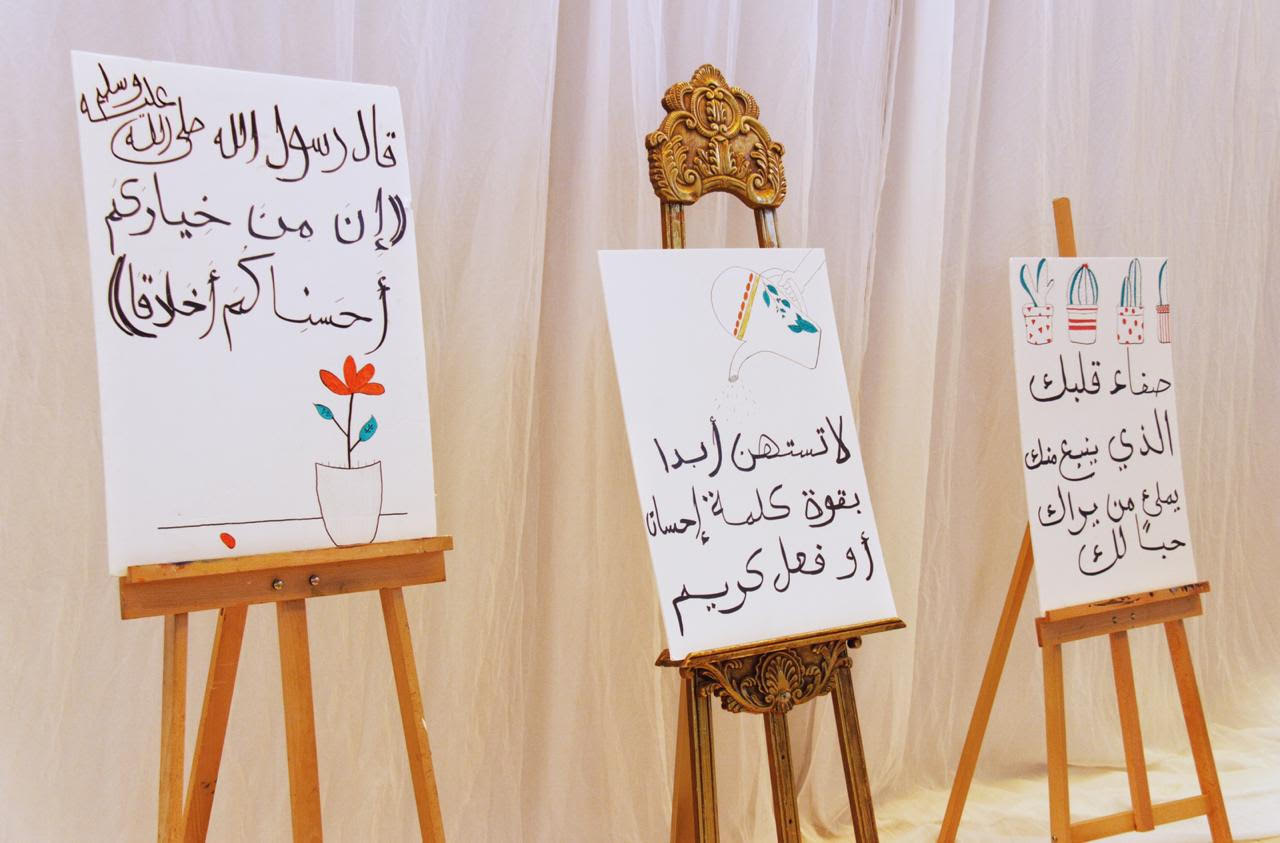 قال رسول الله صلى الله عليه وسلم
((إن من خياركم
أحسناكم أخلاقا))
لا تستهن أبدا
بقوة كلمة إحسان
أو فعل كريم
صفاء قلبك
الذي ينبع منك
يملئ من يراك
حبًا لك